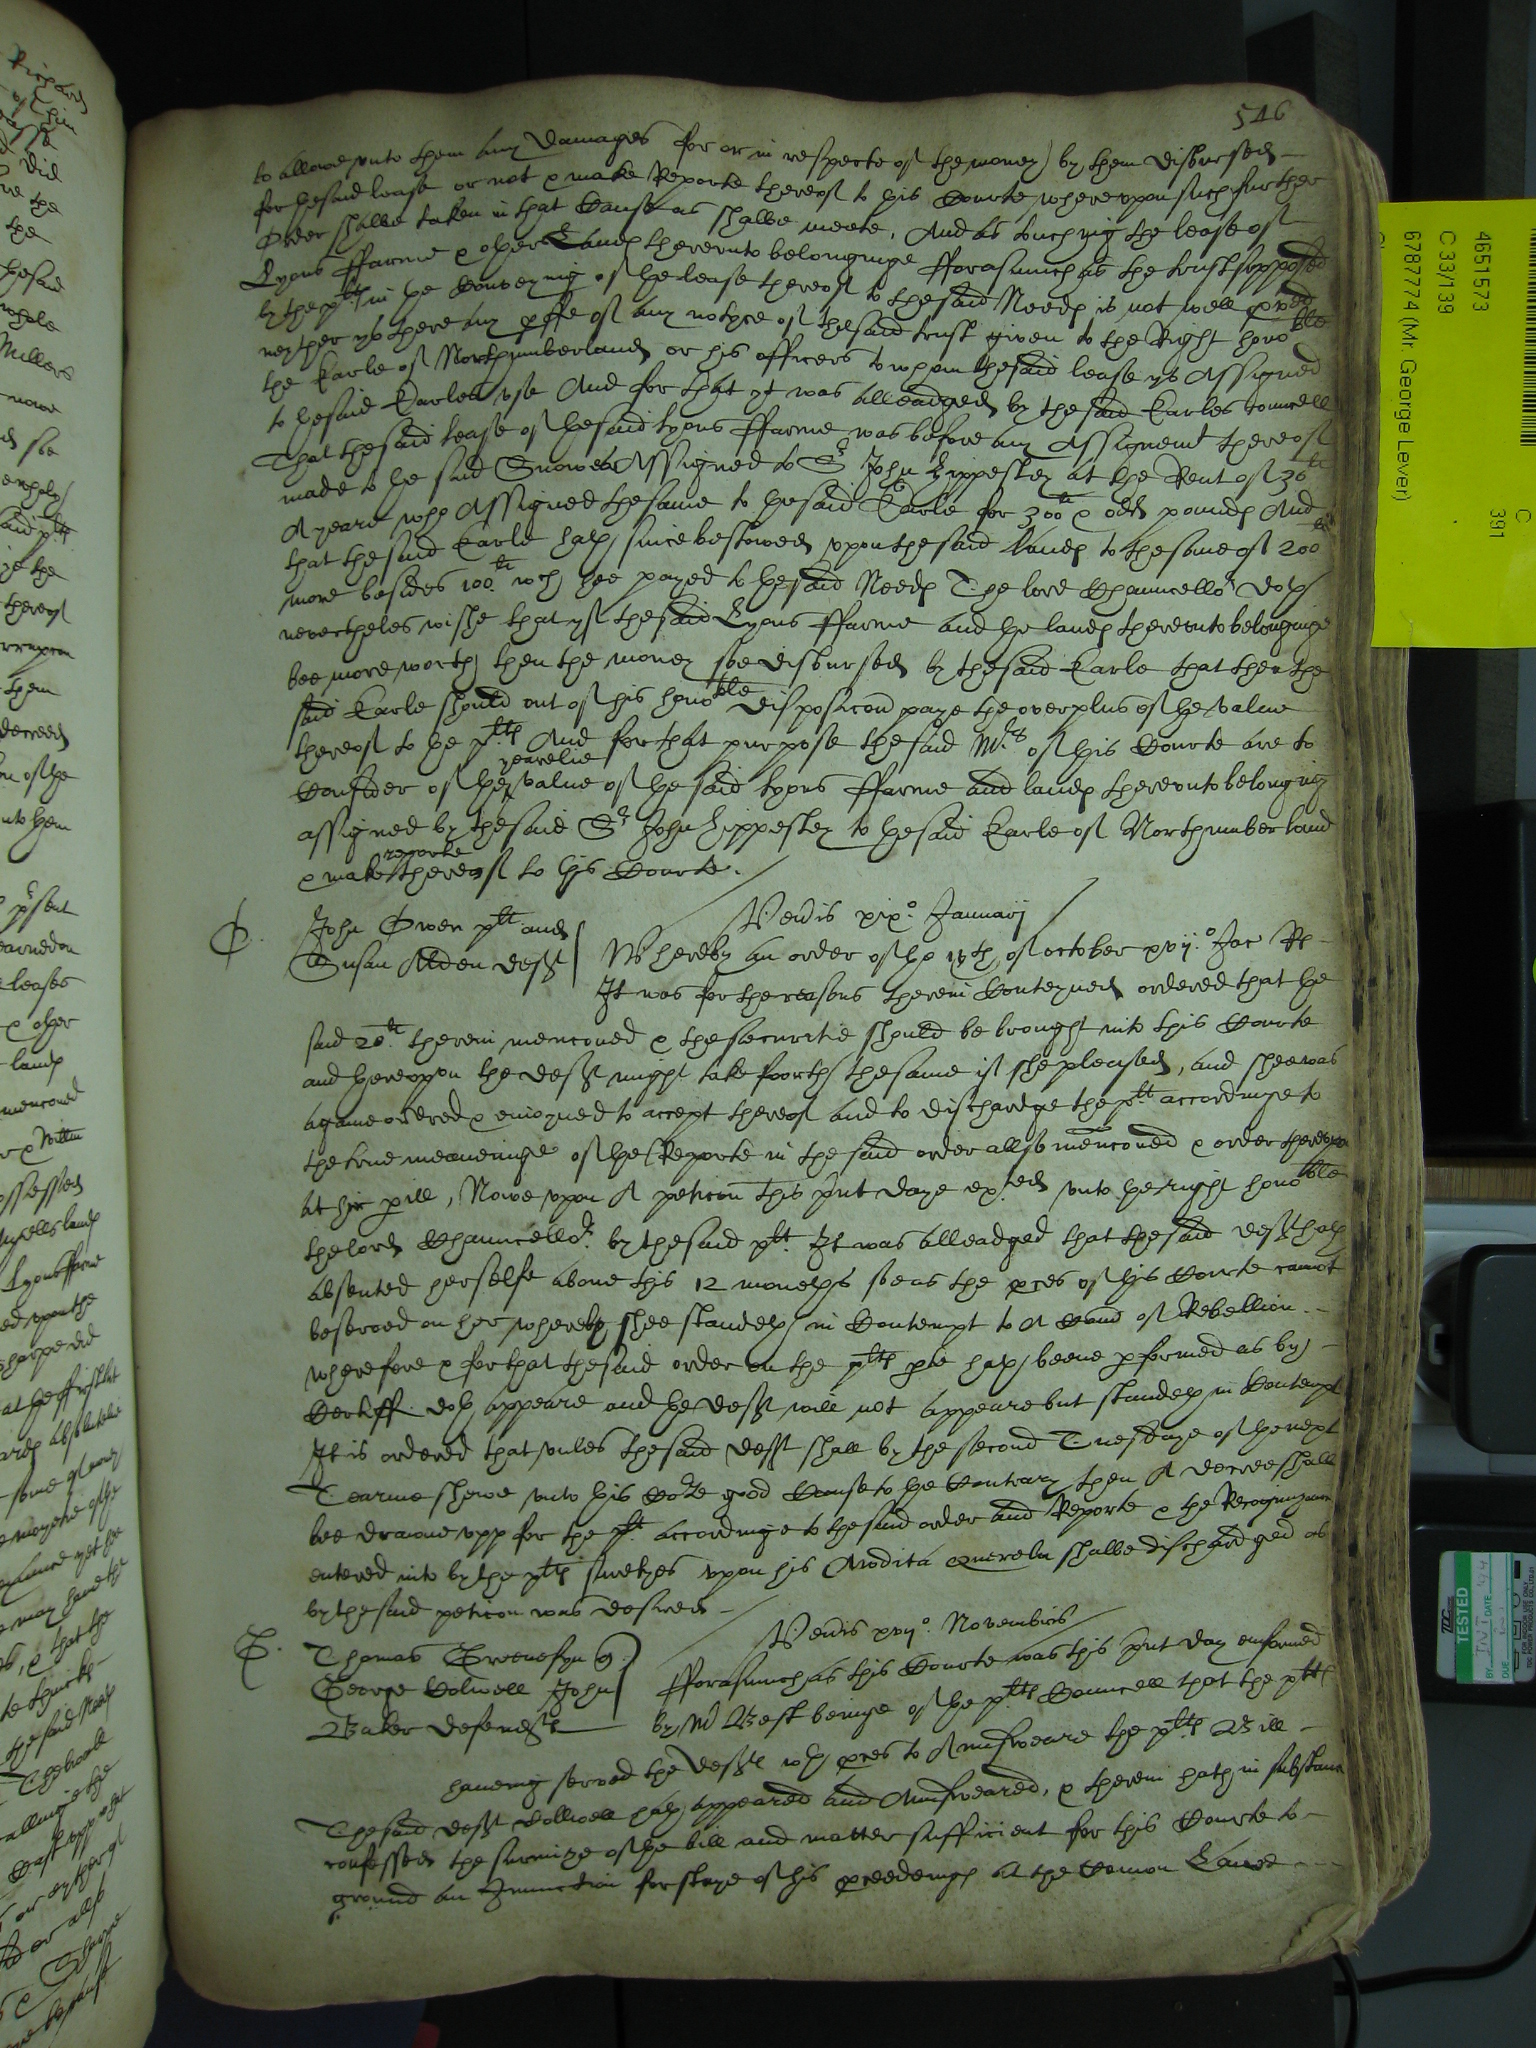 546
to allowe unto them any damages for or in respecte of the money by them disbursed
for the said lease or not & make Reporte thereof to this Courte whereupon such further
Order shalbe taken in that Cause as shalbe meete, And as touching the lease of
Lyons ffarme & other Landes thereunto belonginge fforasmuch as the trust supposed
by the pltts in the Conveying of the lease thereof to the said Needs is not well proved
neyther ys there any proffe of any notyce of the said trust given to the Right honoble
the Earle of Northumberland or his officers to whom the said lease ys Assigned
to the said Earles use And for that yt was alleadged by the said Earles councell
That the said lease of the said Lyons ffarme was before any Assignemt thereof
made to the said Assigned to Sr John Lippesley at the Rent of 30li
A yeare who Assigned the same to the said Earle for 300li & odd pounds And
that the said Earle hath since bestowed upon the said landes to the some of 200li
more besides 100li wch hee payed to the said Needs The lord Chauncellor doth
nevertheles wishe that yf the said Lyons ffarme and the landes thereunto belonginge
bee more worth then the money soe disbursed by the said Earle that then the
said Earle should out of his honoble disposicon paye the overplus of the value
thereof to the pltts And for that purpose the said Mrs of this Courte are to
Consider of the yearelie value of the said Lyons ffarme and landes thereunto belonging
assigned by the said Sr John Lippesley to the said Earle of Northumberland
& make reporte thereof to this Courte.
Veneris xixo Januarij
O.
John Owen pltt and
Susan Alden deft
Whereby an order of the 18th of October xvijo Jac Rs
It was for the reasons therein Conteyned ordered that the
said 20li therein mencioned & the securitie should be brought into this Courte
and thereupon the deft might take foorth the same if she pleased, and shee was
againe ordered & enioyned to accept thereof and to dischardge the pltt accordinge to
the true meaninge of the Reporte in the said order allso mencioned & order thereupon
At hir perill, Nowe upon A peticon this pnt daye exted unto the right honoble
the lord Chauncellor by the said pltt It was alleadged that the said deft hath
absented herselfe above this 12 moneths soe as the pces of this Courte cannot
be served on her whereby shee standeth in Contempt to A Comd of Rebellion
wherefore & for that the said order on the pltts pte hath beene pformed as by
Certiff doth appeare and the deft will not appeare but standeth in Contempt
It is ordered that unles the said deft shall by the second Tuesdaye of the next
Tearme shewe unto this Corte good Cause to the Contrary then A decree shall
bee drawne upp for the plt accordinge to the said order and Reporte & the Recognizance
entered into by the pltts suretyes upon his Audita Querela shalbe dischardged as
by the said peticon was desired
Veneris xvijo Novembris
T.
Thomas
George Colwell John
Baker defendts
fforasmuch as this Courte was this pnt day enformed
by Mr West beinge of the pltts Councell that the pltts
haveing served the defts wth pces to Aunsweare the pltts Bill
The said deft Collwell hath appeared and Aunsweared, & therein hath in substance
confessed the surmize of the bill and matter sufficient for this Courte to
ground an Iniunction for staye of his pceedings at the Comon Lawe
4651573
C 33/139
6787774 (Mr. George Lever)
C
391
TESTED
BY
INT
DATE
DUE